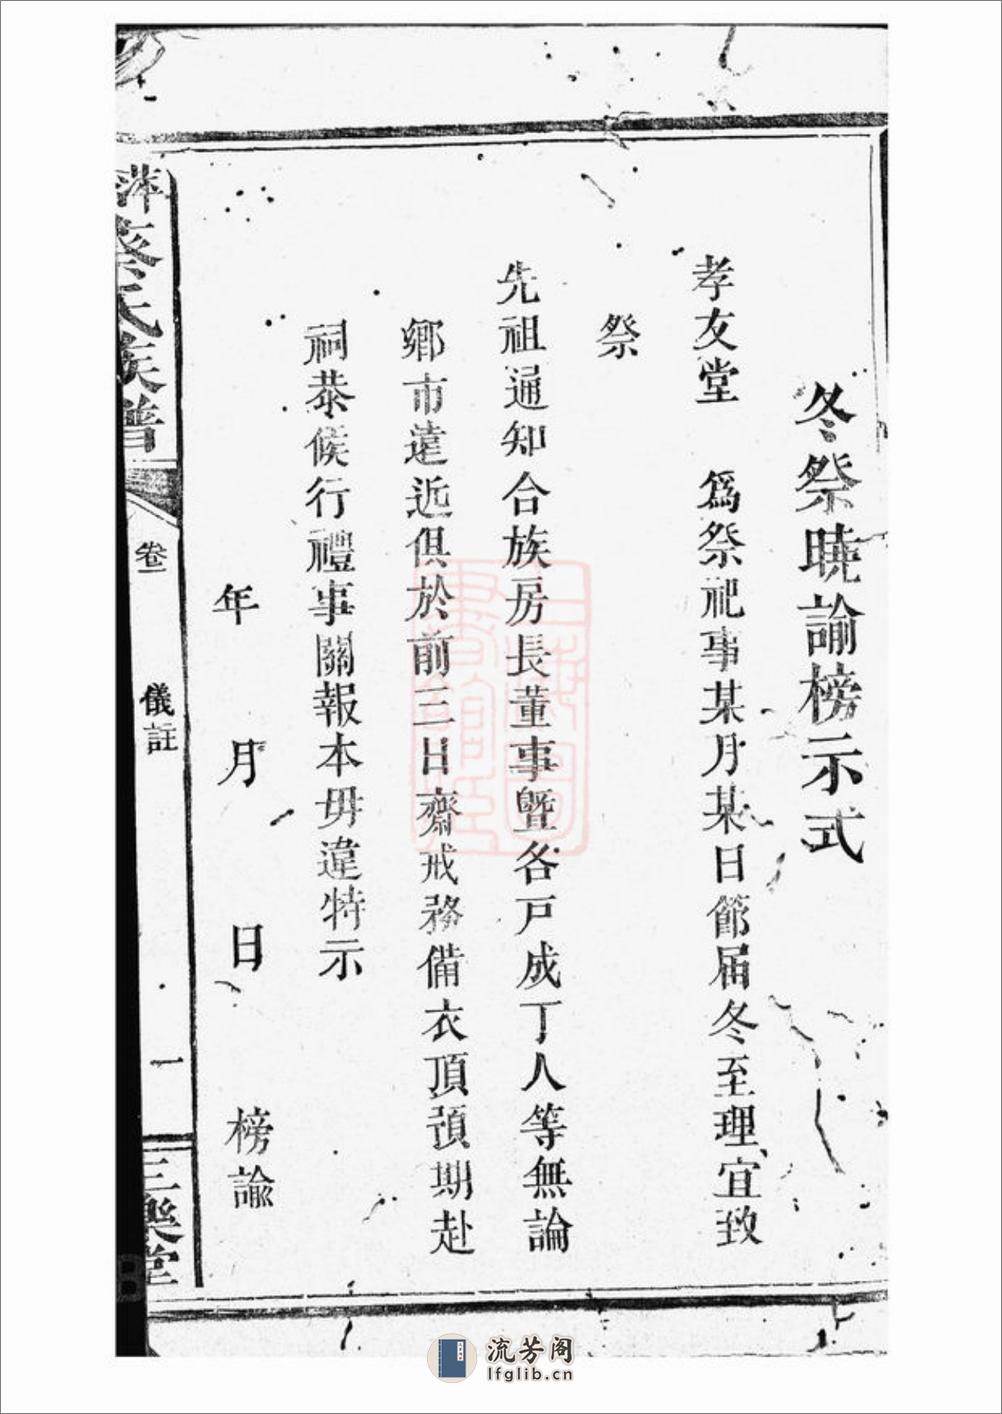 冬祭曉諭榜示式
孝友堂 爲祭祀事某月某日節届冬至理宜致
祭
先祖通知合族房長董事暨各戸成丁人等無論
鄉市遠近俱於前三日齋戒務備衣頂預期赴
祠恭候行禮事關報本毋違特示
年 月 日 榜諭
萍蔡氏族譜 卷一 儀註 一 三樂堂
流芳阁
lfglib.cn